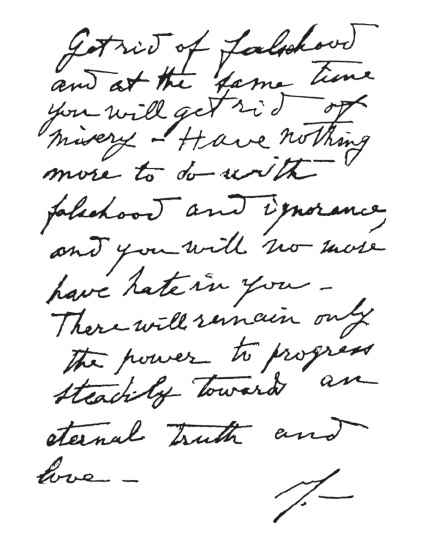 Get rid of falsehood
and at the same time
you will get rid of
misery – Have nothing
more to do with
falsehood and ignorance,
and you will no more
have hate in you –
There will remain only
the power to progress
steadily toward an
eternal truth and
love –